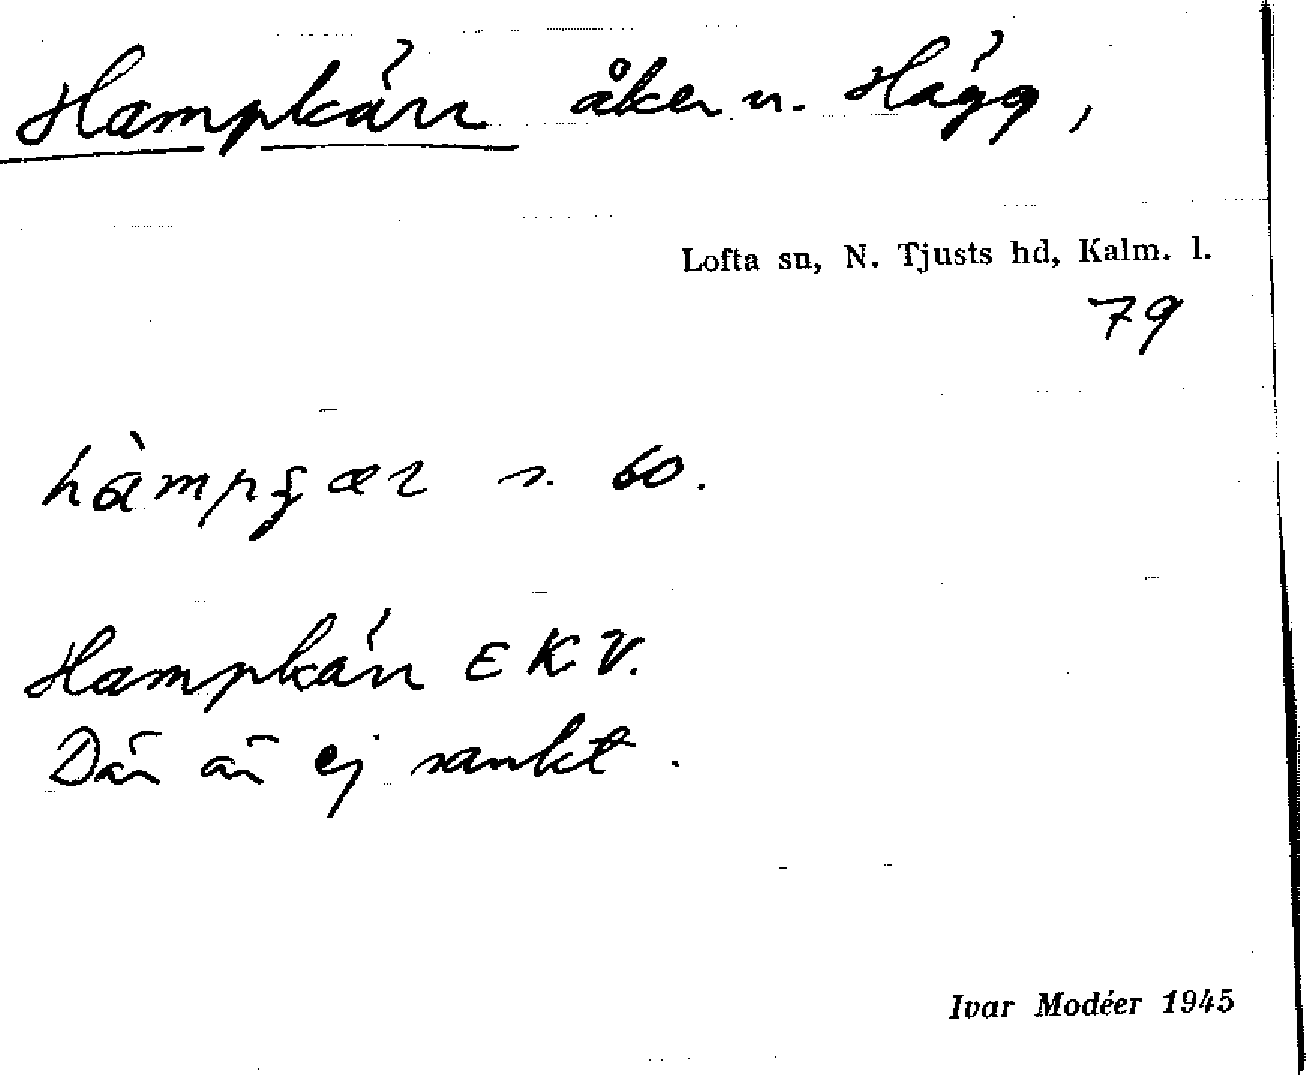 Hampkärr åker u. Hägg,
Lofta sn, N. Tjusts hd, Kalm. l.
79
s. 60.
Hampkärr E K V.
Där är ej sankt.
Ivar Modéer 1945